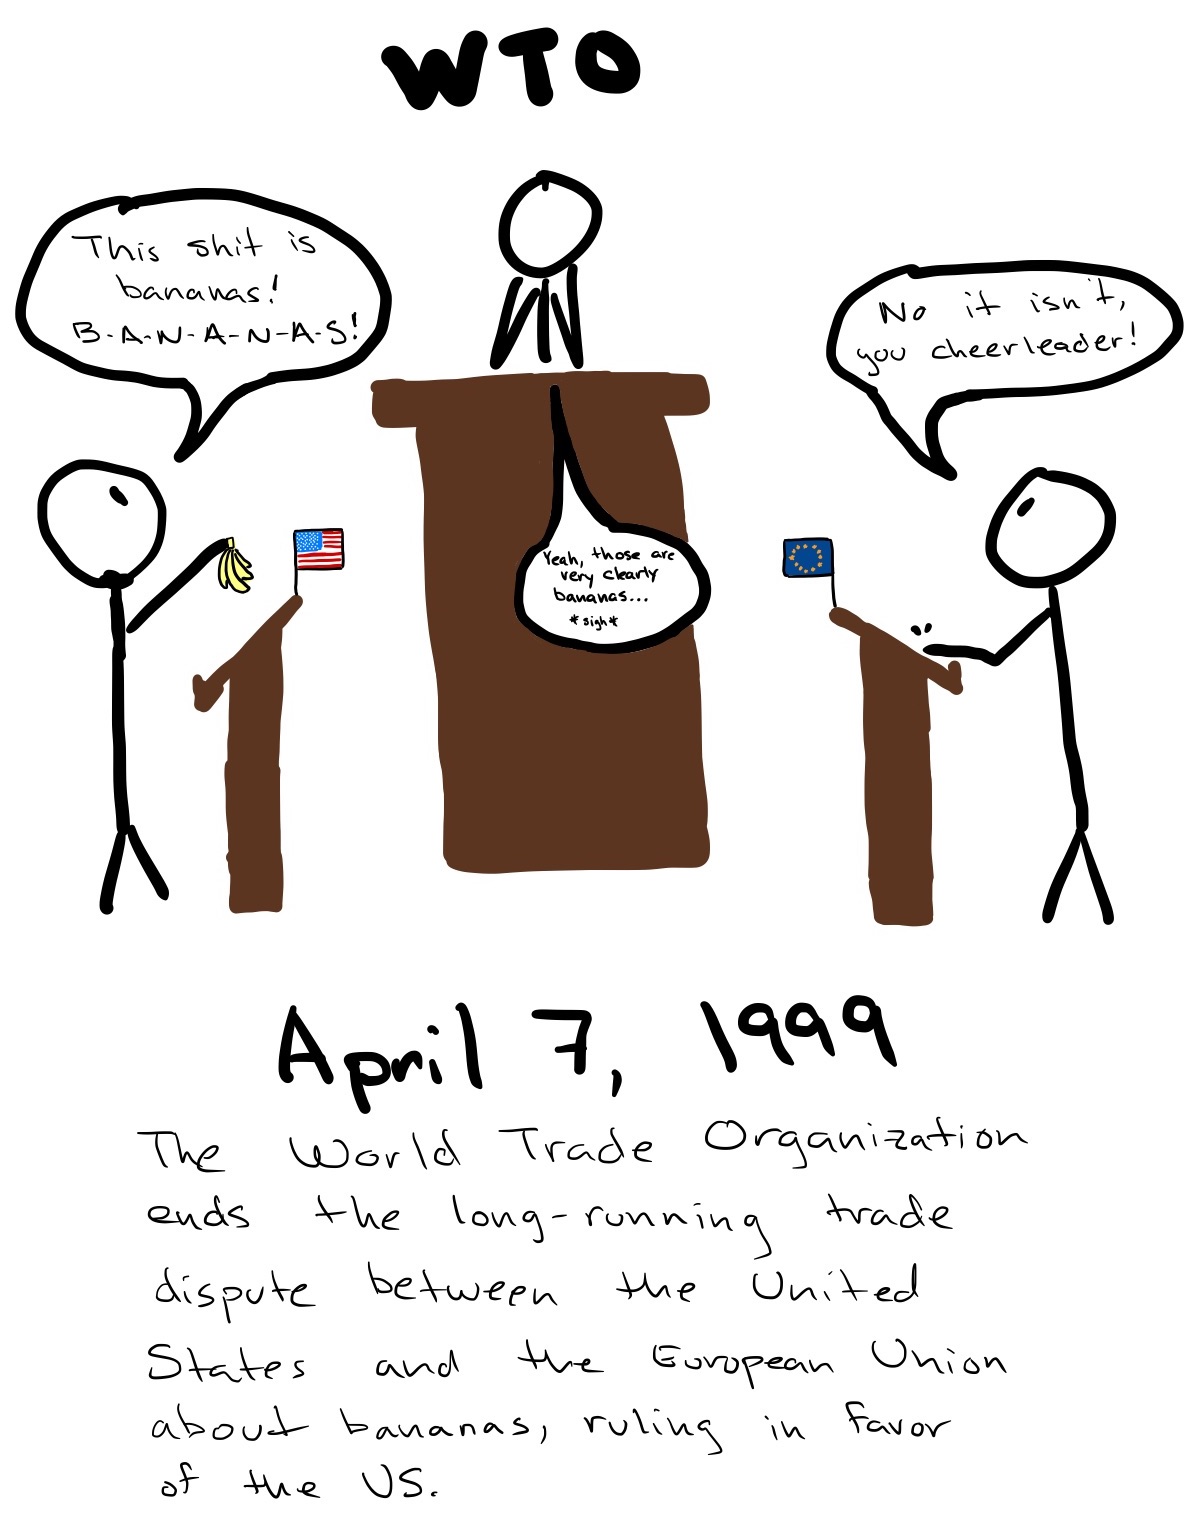 WTO
This shit is
bananas!
B-A-N-A-N-A-S!
No it isn't,
you cheerleader!
Yeah, those are
very clearly
bananas...
*sigh*
April 7, 1999
The World Trade Organization
ends the long-running trade
dispute between the United
States and the European Union
about bananas, ruling in favor
of the US.